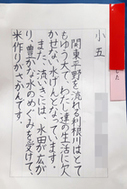 小五
関東平野を流れる利根川はとて
もゆう大で、わたし達の生活に欠
かせない水さんとなっています。
また、流いきには、水田が広が
り、豊かな水のめぐみを受けて、
米作りがさかんです。